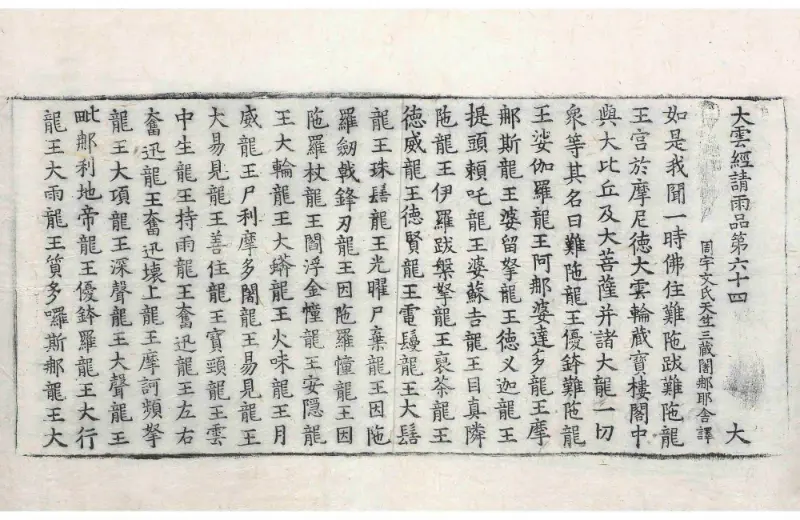 大雲經請雨品第六十四 大
周宇文氏天竺三藏闍那耶舍譯
如是我聞一時佛住難陁跋難陁龍
王宮於摩尼德大雲輪藏寶樓閣中
與大比丘及大菩薩并諸大龍一切
衆等其名曰難陁龍王優鉢難陁龍
王娑伽羅龍王阿那婆達多龍王摩
那斯龍王婆留拏龍王德叉迦龍王
提頭頼吒龍王婆蘇吉龍王目真隣
陁龍王伊羅跋槃拏龍王裹茶龍王
德威龍王德賢龍王電鬘龍王大髻
龍王珠髻龍王光曜尸棄龍王因陁
羅劒戟鋒刃龍王因陁羅幢龍王因
陁羅杖龍王閻浮金幢龍王安隱龍
王大輪龍王大蟒龍王火味龍王月
威龍王尸利摩多闍龍王易見龍王
大易見龍王善住龍王寶頸龍王雲
中生龍王持雨龍王奮迅龍王左右
奮迅龍王奮迅壞上龍王摩訶頻拏
龍王大項龍王深聲龍王大聲龍王
毗那利地帝龍王優鉢羅龍王大行
龍王大雨龍王質多囉斯那龍王大